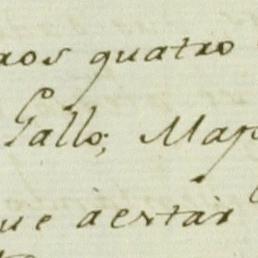 aos quatro
Gallo; Map
que aestas